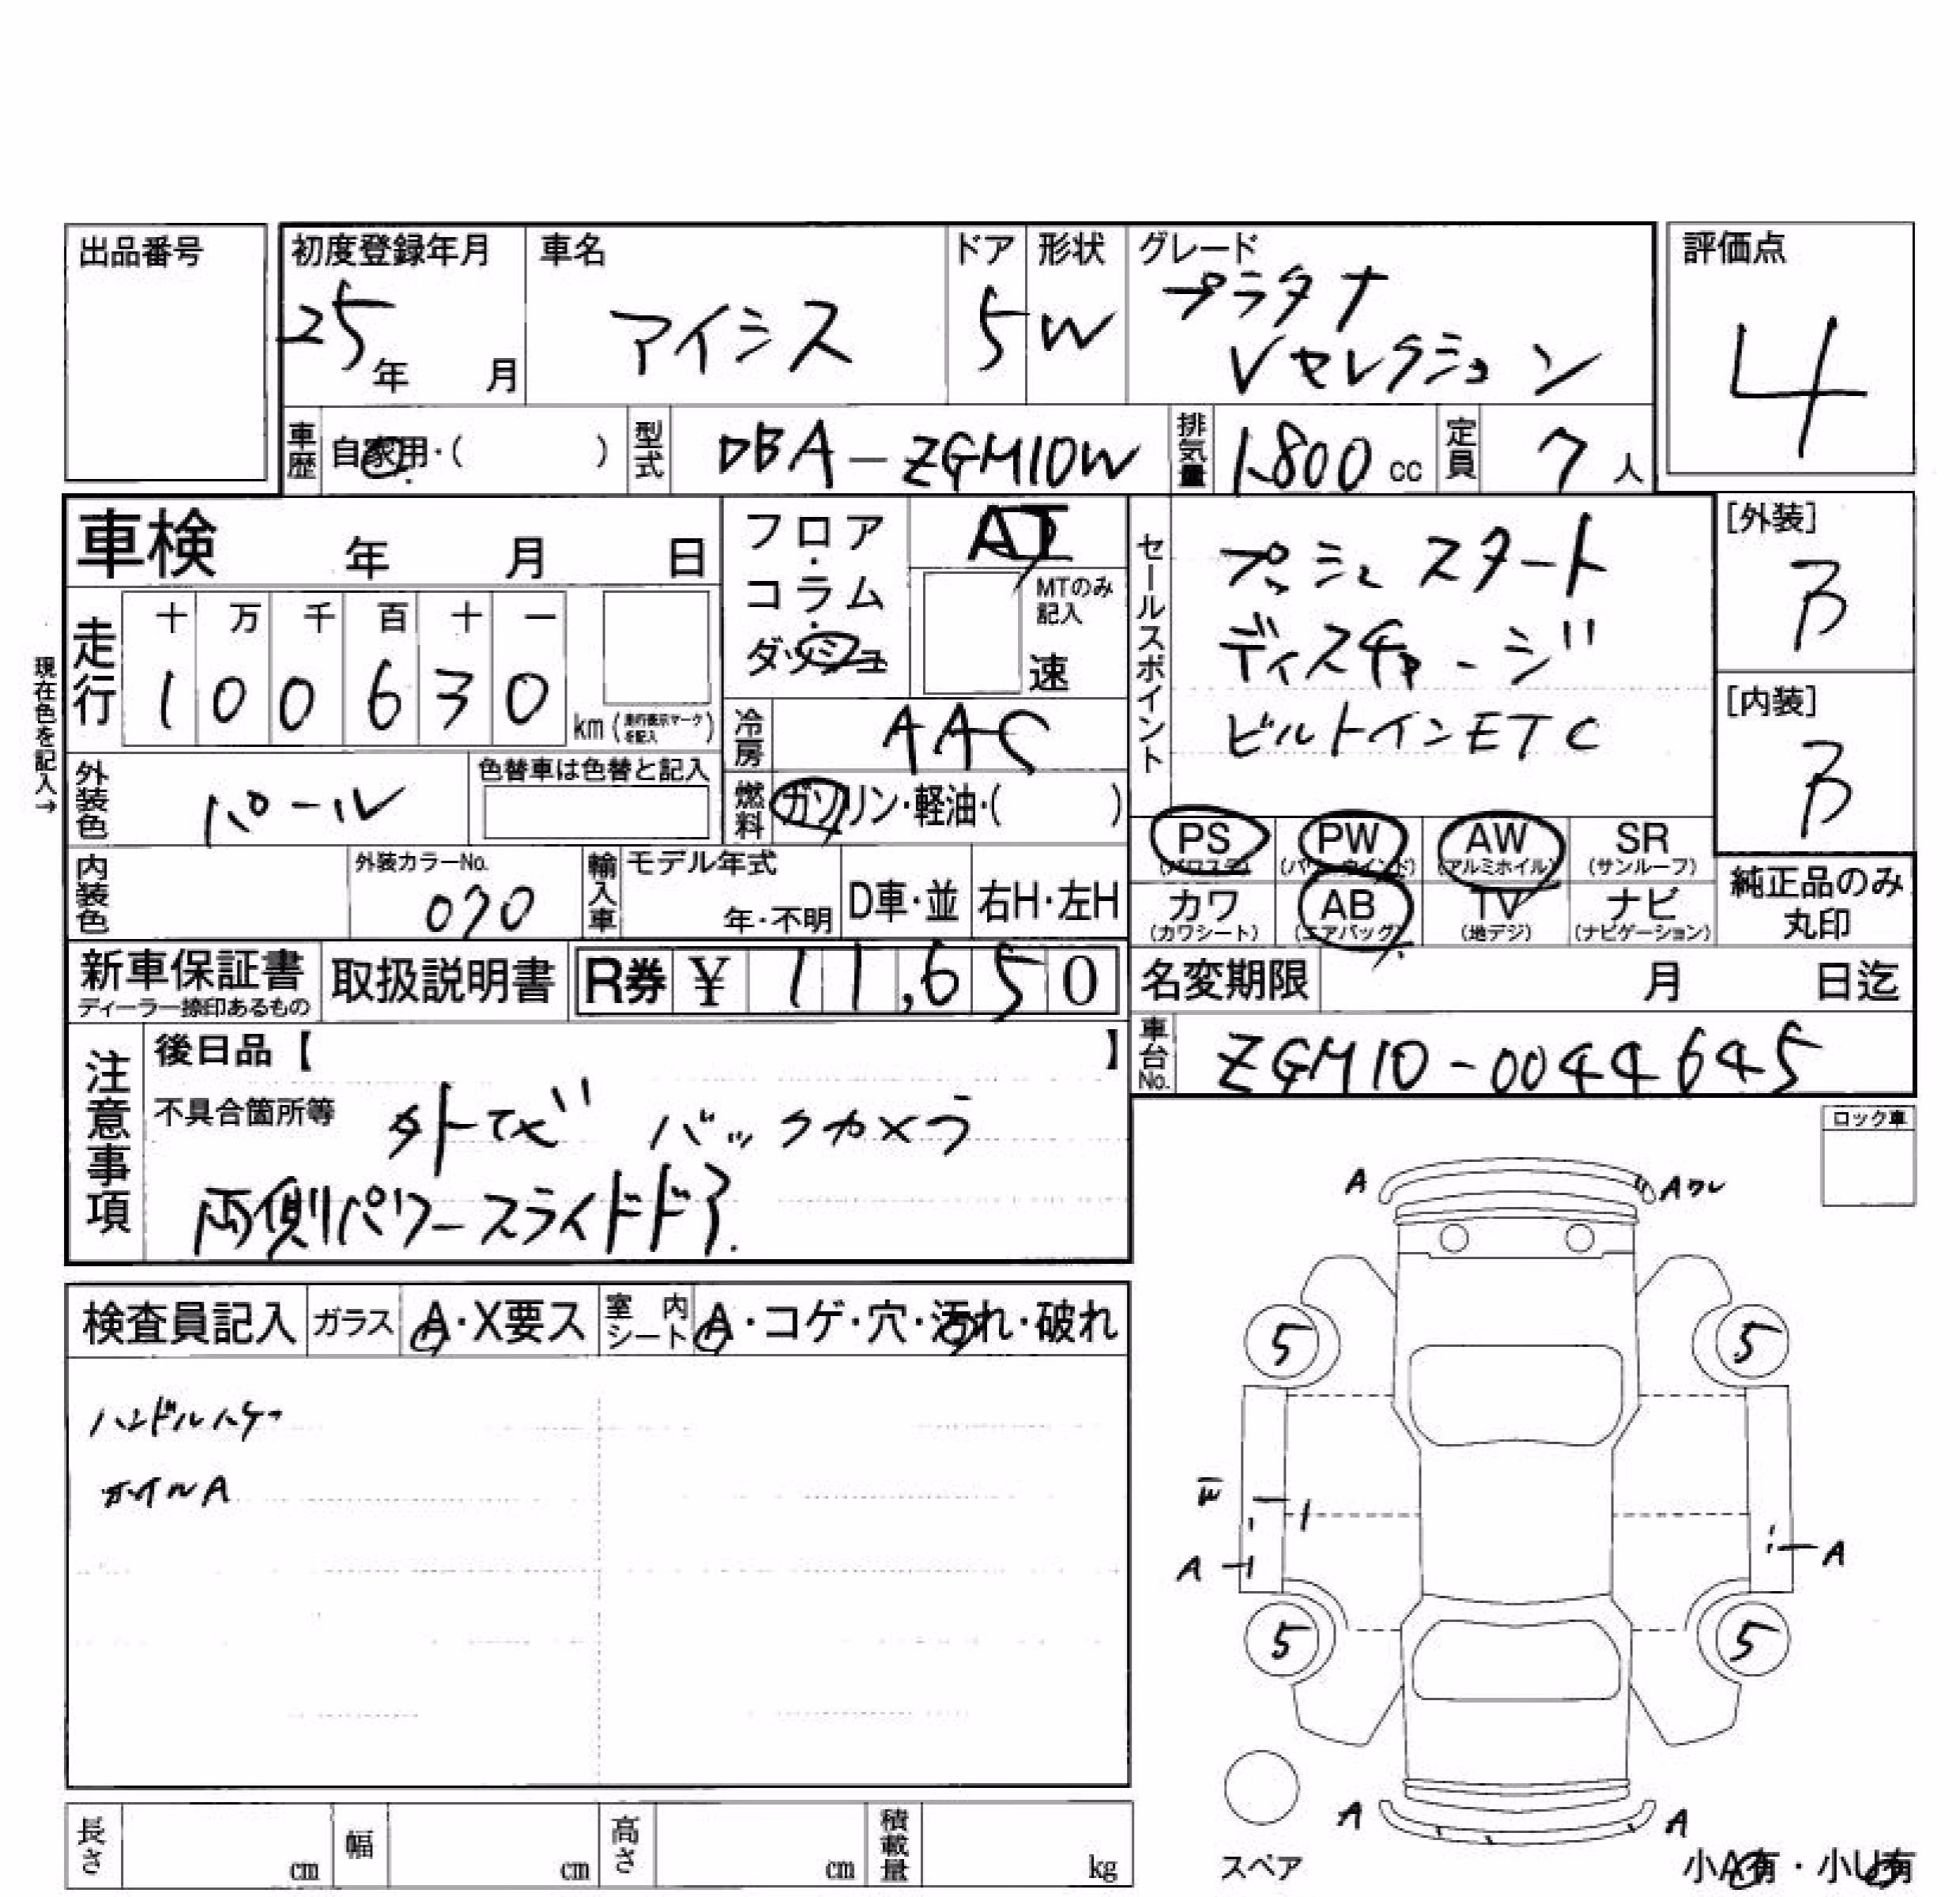 出品番号
初度登録年月
25年 月
車名
アイシス
ドア
5
形状
W
グレード
プラタナ
Vセレクション
評価点
4
車歴
自家用・( )
型式
DBA-ZGM10W
排気量
1,800 cc
定員
7 人
車検 年 月 日
フロア・コラム・ダッシュ
AT
MTのみ記入
速
セールスポイント
プッシュスタート
ディスチャージ
ビルトインETC
[外装]
B
[内装]
B
現在色を記入→
走行
十 万 千 百 十 一
1 0 0 6 3 0
km (走行表示マークを記入)
冷房
AAC
外装色
パール
色替車は色替と記入
燃料
ガソリン・軽油・( )
PS
(パワステ)
PW
(パワーウインド)
AW
(アルミホイル)
SR
(サンルーフ)
カワ
(カワシート)
AB
(エアバッグ)
TV
(地デジ)
ナビ
(ナビゲーション)
純正品のみ
丸印
内装色
外装カラーNo.
070
輸入車
モデル年式
年・不明
D車・並
右H・左H
新車保証書
ディーラー捺印あるもの
取扱説明書
R券 ¥ 11,650
名変期限 月 日迄
車台No.
ZGM10-0044645
注意事項
後日品【 】
不具合箇所等
外ナビ バックカメラ
両側パワースライドドア
ロック車
検査員記入
ガラス
A・X要ス
室内シート
A・コゲ・穴・汚れ・破れ
ハンドルハゲ
ホイルA
A
Aワレ
5
5
A
A
5
5
A
A
スペア
小A有・小U有
長さ cm
幅 cm
高さ cm
積載量 kg